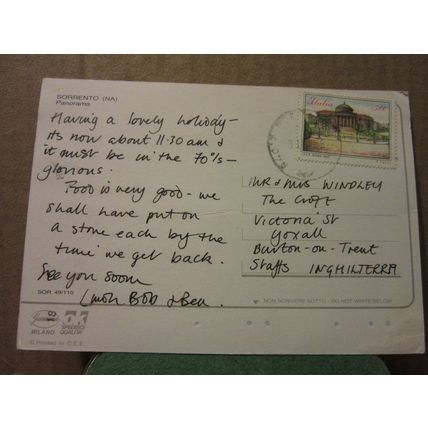 SORRENTO (NA)
Panorama
Having a lovely holiday -
its now about 11.30 am &
it must be in the 70°s -
glorious.
Food is very good - we
shall have put on
a stone each by the
time we get back.
See you soon
Bob & Bea.
SOR 49/110
MILANO
OK
SPECIAL
QUALITÀ
© Printed in C.E.E.
Italia
MR & MRS WINDLEY
The Croft
Victoria St
Yoxall
Burton-on-Trent
Staffs INGHILTERRA
NON SCRIVERE SOTTO - DO NOT WRITE BELOW